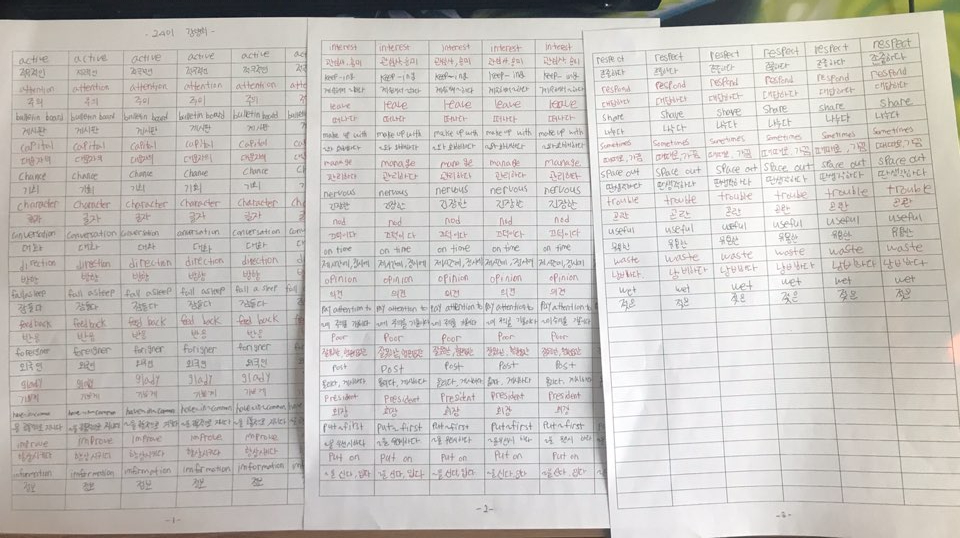 active active active active active
적극적인 적극적인 적극적인 적극적인
attention attention attention attention atten
주의 주의 주의 주의
bulletin board bulletin board bulletin board bulletin board bulletin board
게시판 게시판 게시판 게시판
capital capital capital capital capital
대문자의 대문자의 대문자의 대문자의
chance chance chance chance
기회 기회 기회 기회
character character character character cha
글자 글자 글자 글자
conversation conversation conversation conversation
대화 대화 대화 대화
direction direction direction direction
방향 방향 방향 방향
fall asleep fall asleep fall asleep fall asleep fall asleep
잠들다 잠들다 잠들다 잠들다
feed back feed back feed back feed back
반응 반응 반응 반응
foreigner foreigner forigner foreigner
외국인 외국인 외국인 외국인
glady glady glady glady
기쁘게 기쁘게 기쁘게
improve improve improve improve
향상시키다 향상시키다 향상시키다 향상시키다
information information information information
정보 정보 정보 정보
-1-
interest interest interest interest interest
관심사, 흥미 관심사, 흥미 관심사, 흥미 관심사, 흥미 관심사, 흥미
keep~ing keep~ing keep~ing keep~ing keep~ing
leave leave leave leave leave
떠나다 떠나다 떠나다 떠나다 떠나다
make up with make up with make up with make up with make up with
~와 화해하다 ~와 화해하다 ~와 화해하다 ~와 화해하다 ~와 화해하다
manage manage manage manage manage
관리하다 관리하다 관리하다 관리하다 관리하다
nervous nervous nervous nervous nervous
긴장한 긴장한 긴장한 긴장한 긴장한
nod nod nod nod nod
끄덕이다 끄덕이다 끄덕이다 끄덕이다 끄덕이다
on time on time on time on time on time
제시간에, 정시에 제시간에, 정시에 제시간에, 정시에 제시간에, 정시에 제시간에, 정시에
opinion opinion opinion opinion opinion
의견 의견 의견 의견 의견
pay attention to pay attention to pay attention to pay attention to pay attention to
poor poor poor poor poor
post post post post post
president president president president president
회장 회장 회장 회장 회장
put~first put~first put~first put~first put~first
put on put on put on put on put on
~을 신다, 입다 ~을 신다, 입다 ~을 신다, 입다 ~을 신다, 입다 ~을 신다, 입다
-2-
respect respect respect respect respect respect
존중하다 존중하다 존중하다 존중하다 존중하다 존중하다
respond respond respond respond respond respond
대답하다 대답하다 대답하다 대답하다 대답하다 대답하다
share share share share share share
나누다 나누다 나누다 나누다 나누다 나누다
sometimes sometimes sometimes sometimes sometimes sometimes
때때로, 가끔 때때로, 가끔 때때로, 가끔 때때로, 가끔 때때로, 가끔 때때로, 가끔
space out space out space out space out space out space out
딴생각하다 딴생각하다 딴생각하다 딴생각하다 딴생각하다 딴생각하다
trouble trouble trouble trouble trouble trouble
곤란 곤란 곤란 곤란 곤란 곤란
useful useful useful useful useful useful
유용한 유용한 유용한 유용한 유용한 유용한
waste waste waste waste waste waste
낭비하다 낭비하다 낭비하다 낭비하다 낭비하다 낭비하다
wet wet wet wet wet wet
젖은 젖은 젖은 젖은 젖은 젖은
-3-